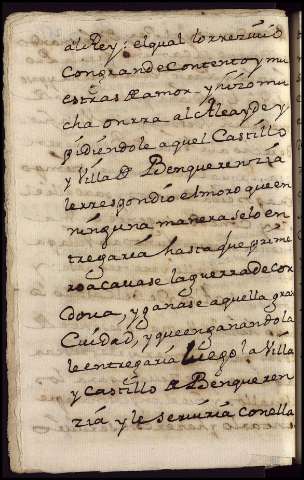 al Rey: el qual lo rrezivio
Con gran de Contento y mu
estras de amor. y hizo mu
cha onrra al Alcayde y
pidiendole aquel Castillo
y Villa de Benquerenzia
le rrespondio el moro que en
ninguna manera se lo en
tregaria hasta que prime
ro acavase la guerra de cor
doua, y ganase aquella gran
Ciudad, y que en ganandola
le entregaria luego la Villa
y Castillo de Benqueren
zia y le serviria con ella